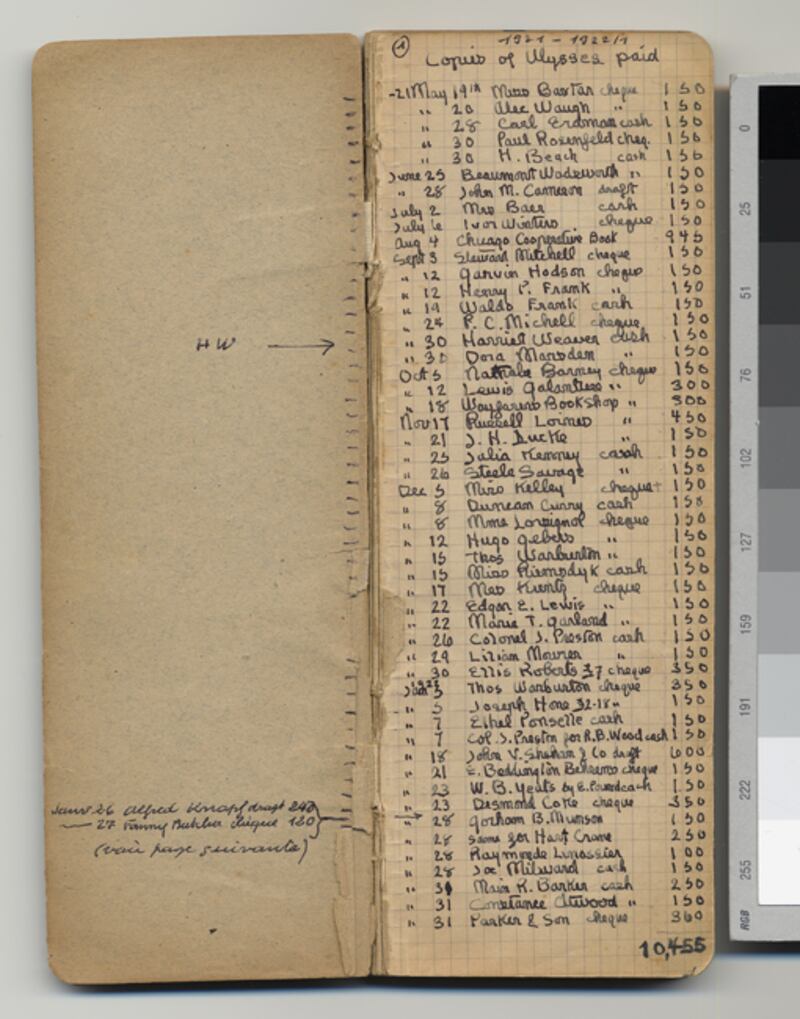 HW →
Janv. 26 Alfred Knopf draft 240
— 27 Fanny Butcher chèque 120
(voir page suivante)
1
1921 - 1922/1
Copies of Ulysses paid
-21 May 19th Miss Baxter cheque 150
" 20 Alec Waugh " 150
" 28 Carl Erdman cash 150
" 30 Paul Rosenfeld cheq. 150
" 30 H. Beach cash 150
June 25 Beaumont Wadsworth " 150
" 28 John M. Cameron draft 150
July 2 Mrs Baer cash 150
July 6 Ivor Winters cheque 150
Aug 4 Chicago Cooperative Book 945
Sept 3 Steward Mitchell cheque 150
" 12 Garvin Hodson cheque 150
" 12 Henry P. Frank " 150
" 19 Waldo Frank cash 150
" 24 P. C. Michell cheque 150
" 30 Harriet Weaver cash 150
" 30 Dora Marsden " 150
Oct 5 Nathalie Barney cheque 150
" 12 Lewis Galantiere " 300
" 18 Wayfarers Bookshop " 300
Nov 17 Russell Loines " 450
" 21 J. H. Lucke " 150
" 25 Julia Kenney cash 150
" 26 Steele Savage " 150
Dec 5 Miss Kelley cheque 150
" 8 Duncan Curry cash 150
" 8 Mme Lorsignol cheque 150
" 12 Hugo Gebers " 150
" 15 Thos Warburton " 150
" 15 Miss Riemsdyk cash 150
" 17 Mrs cheque 150
" 22 Edgar E. Lewis " 150
" 22 Marie T. Garland " 150
" 26 Colonel J. Preston cash 150
" 29 Lilian Mowrer " 150
" 30 Ellis Roberts 37 cheque 350
3 Thos Warburton cheque 350
" 5 Joseph Hone 32-18 " 150
" 7 Ethel Ponselle cash 150
" 7 Col. J. Preston for R.B. Wood cash 150
" 18 John V. Sheehan & Co draft 600
" 21 E. Beddington Behrens cheque 150
" 23 W. B. Yeats by E. Pound cash 150
" 23 Desmond Coke cheque 350
→ " 28 Gorham B. Munson 150
" 28 same for Hart Crane 250
" 28 Raymonde Linossier 100
" 28 Joe Milward cash 150
" 31 R. Barker cash 250
" 31 Constance Atwood " 150
" 31 Parker & Son cheque 360
10,455
0
25
51
76
102
127
159
191
222
255
RGB